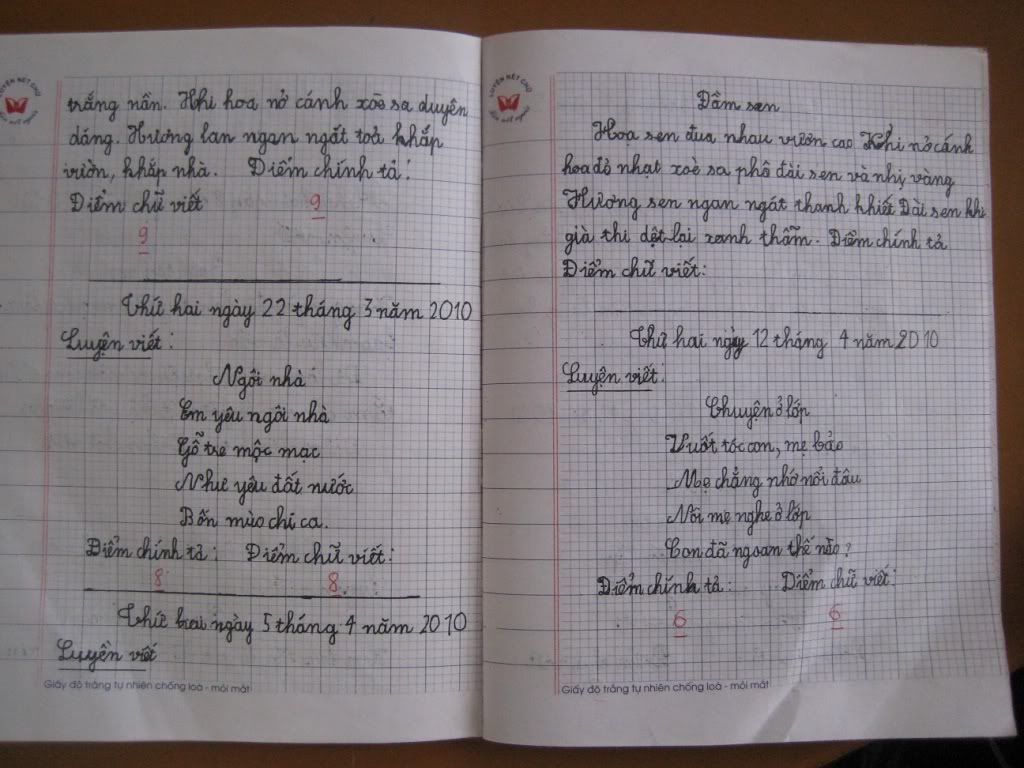 LUYỆN NÉT CHỮ
trắng nần. Khi hoa nở cánh xoè sa duyên
dáng. Hương lan ngan ngất toả khắp
vườn, khắp nhà. Điểm chính tả:
Điểm chữ viết
9
9
Thứ hai ngày 22 tháng 3 năm 2010
Luyện viết:
Ngôi nhà
Em yêu ngôi nhà
Gỗ tre mộc mạc
Như yêu đất nước
Bốn mùa chi ca.
Điểm chính tả: Điểm chữ viết:
8 8
Thứ hai ngày 5 tháng 4 năm 2010
Luyền viết
Giấy độ trắng tự nhiên chống loá - mỏi mắt
LUYỆN NÉT CHỮ
Đầm sen
Hoa sen đua nhau vươn cao Khi nở cánh
hoa đỏ nhạt xoè sa phô đài sen và nhị vàng
Hương sen ngan ngát thanh khiết Đài sen khi
già thì dệt lại xanh thẫm. Điểm chính tả
Điểm chữ viết:
Thứ hai ngày 12 tháng 4 năm 2010
Luyện viết:
Chuyện ở lớp
Vuốt tóc con, mẹ bảo
Mẹ chẳng nhớ nổi đâu
Nói mẹ nghe ở lớp
Con đã ngoan thế nào?
Điểm chính tả: Điểm chữ viết:
6 6
Giấy độ trắng tự nhiên chống loá - mỏi mắt